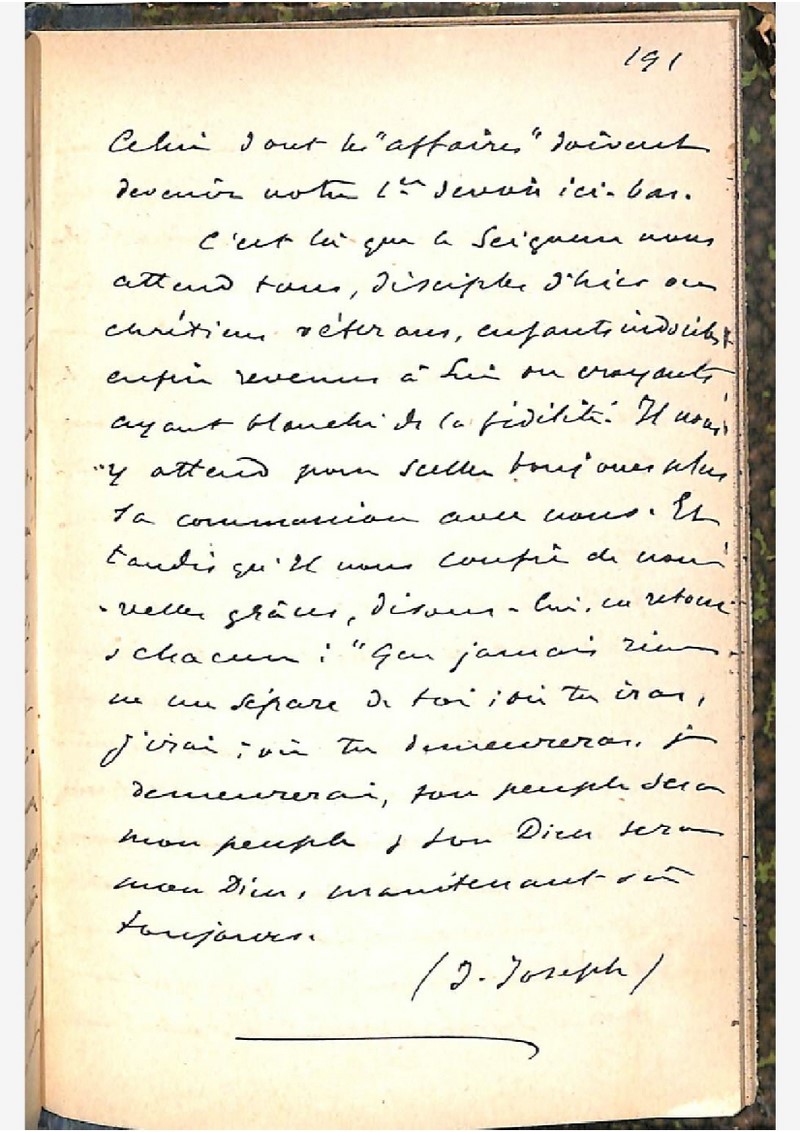 191
Celui dont les "affaires" doivent
devenir notre 1er devoir ici-bas.
C'est là que le Seigneur nous
attend tous, disciples d'hier ou
chrétiens vétérans, enfants indociles
enfin revenus à Lui ou croyants
ayant blanchi ds la fidélité. Il nous
y attend pour sceller toujours plus
sa communion avec nous. Et
tandis qu'Il nous confie de nou-
-velles grâces, disons-lui, en retour
chacun : "Que jamais rien
ne me sépare de toi ; où tu iras,
j'irai ; où tu demeureras, je
demeurerai, ton peuple sera
mon peuple & ton Dieu sera
mon Dieu, maintenant et à
toujours.
(J. Joseph)